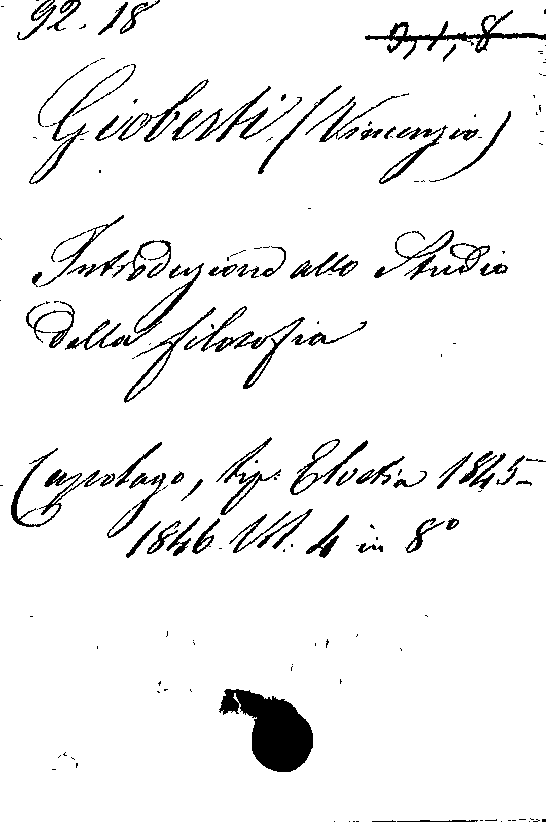 92. 18
9, 1, 8
Gioberti (Vincenzio)
Introduzione allo Studio
della filosofia
Capolago, tip. Elvetia 1845-
1846. Vol. 4 in 8°